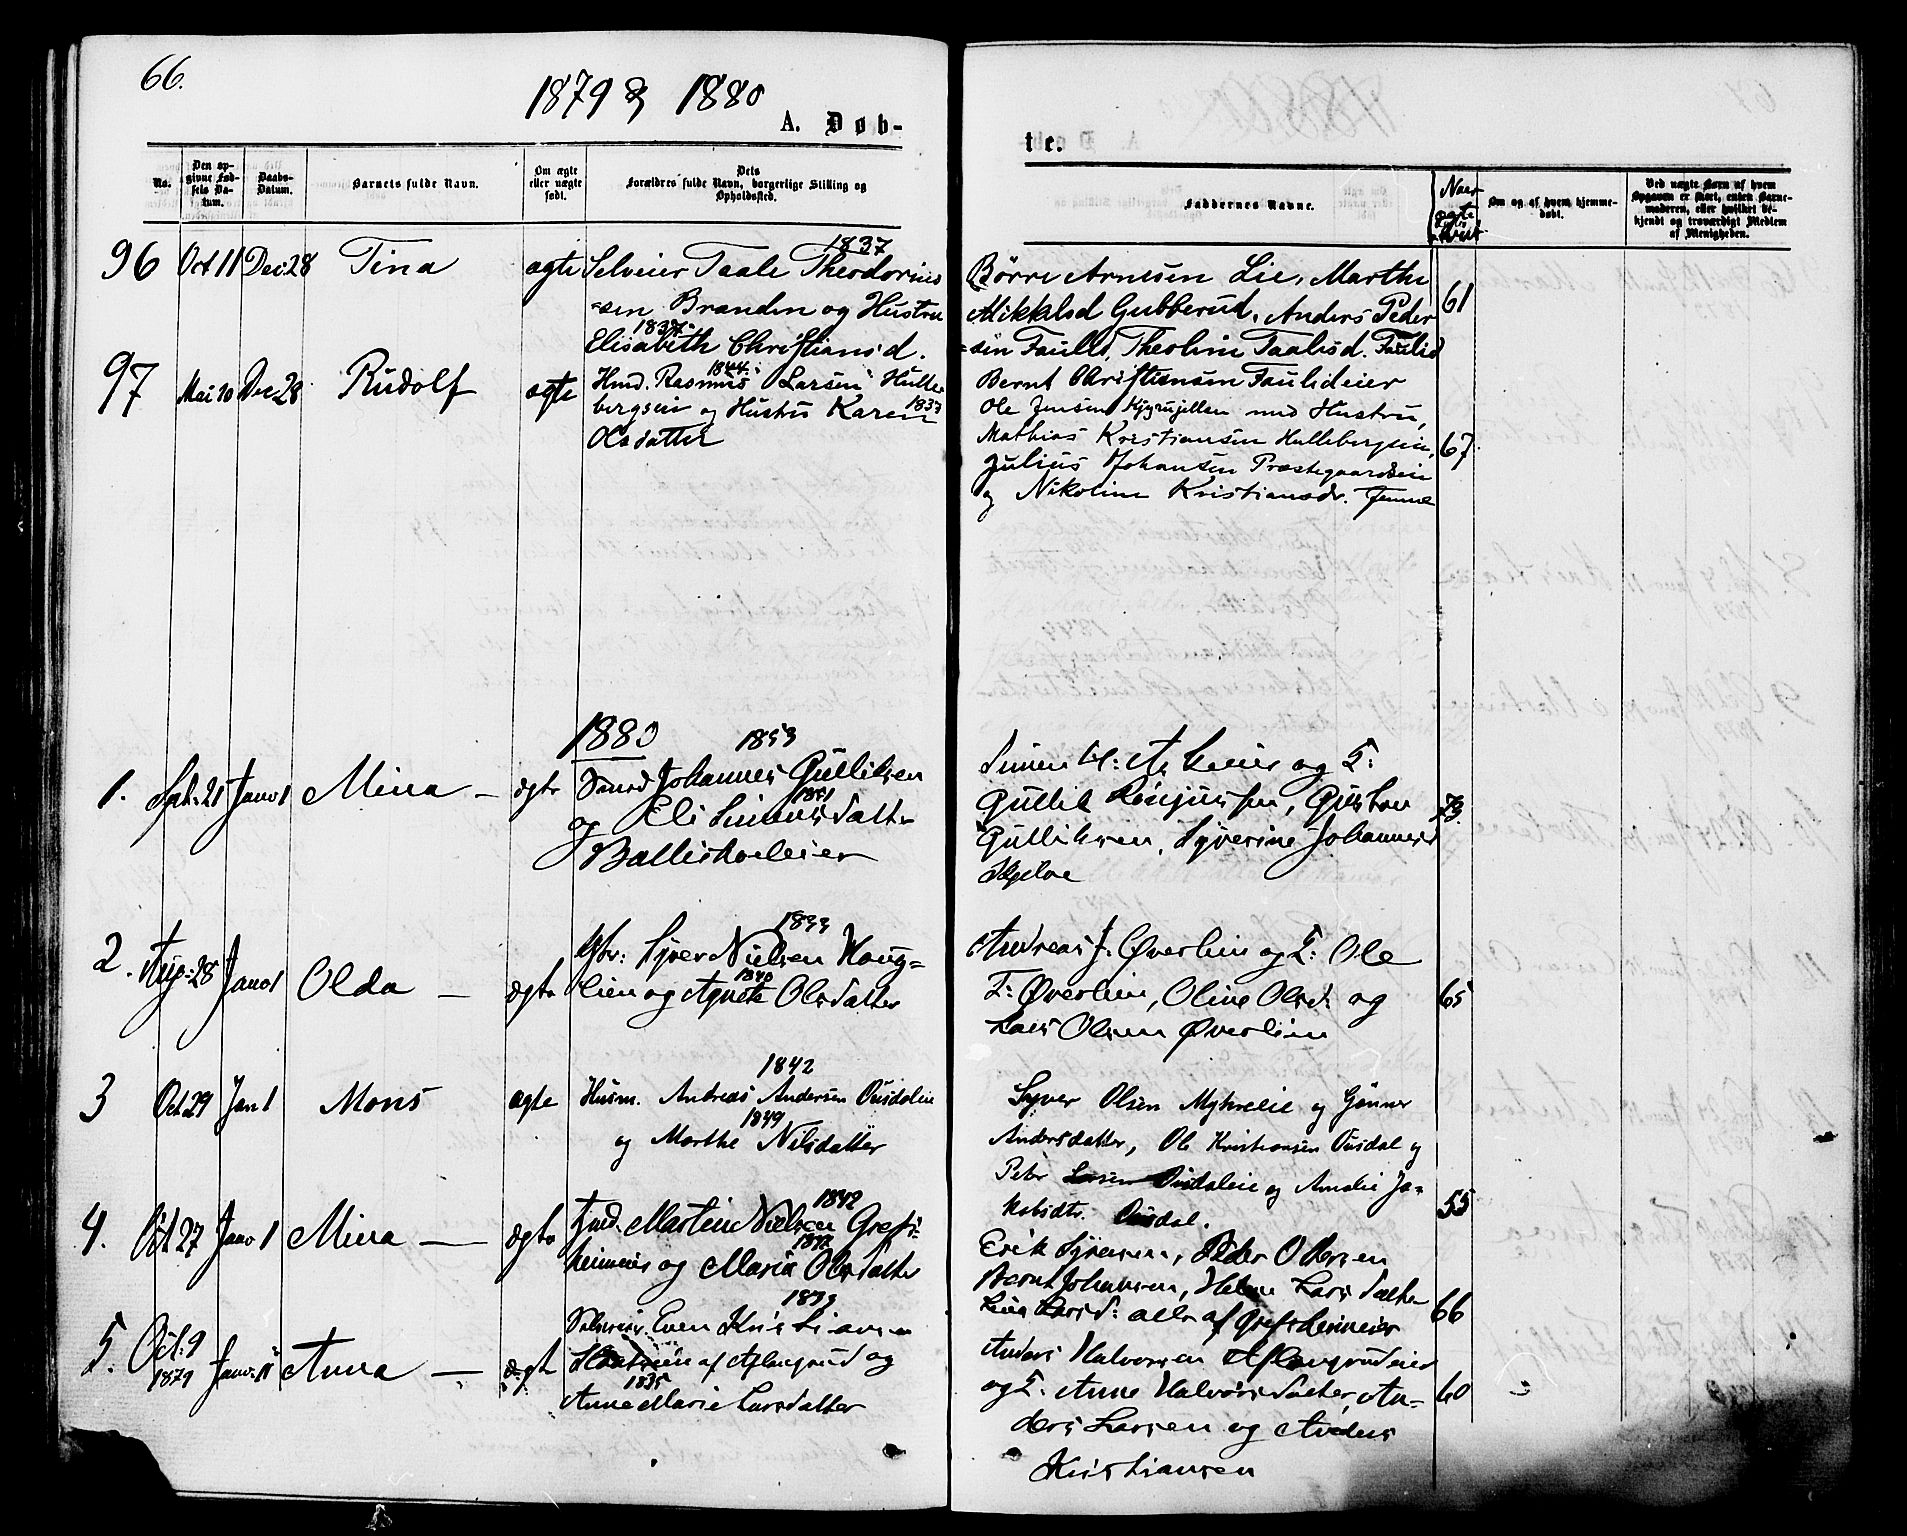 66.
1879 & 1880
A. Døb-
te.
No.
Den opgivne Fødsels Datum.
Daabs-Datum.
Barnets fulde Navn.
Om ægte eller uægte født.
Dets Forældres fulde Navn, borgerlige Stilling og Opholdssted.
Faddernes Navne.
Om og af hvem hjemmedøbt.
Ved uægte Børn af hvem Opgaven er skeet, enten Barnemoderen, eller hvilket bekjendt og troværdigt Medlem af Menigheden.
96 Oct 11 Dec 28 Tina ægte
1837
Selveier Taale Theodorius
=sen Branden og Hustru
1837
Elisabeth Christiansd.
Børre Arnesen Lie, Marthe
Mikkelsd Gubberud, Anders Peder
=sen Faulid, Theoline Taalesd. Faulid
Bernt Christiansen Faulideier
61
97 Mai 10 Dec 28 Rudolf ægte
1844
Husmd. Rasmus Larsen Hulle
bergseie og Hustru Karen 1837
Olsdatter
Ole Jensen med Hustru,
Mathias Kristiansen Hullebergseie,
Julius Johansen Præstegaardseie
og Nikoline Kristiansdr.
67
1880
1. Sept: 21 Janr 1 Mina — ægte
1853
Johannes Gulliksen
1851
og Eli Simensdatter
Ballisholeier
Simen og F:
Gullik, Gustav
Gulliksen, Syverine Johannes
73.
2. Aug: 28 Janr 1 Olda — ægte
1833
Gbr: Syver Nielsen Houg=
1840
lien og Agnete Olsdatter
Andreas J: Øverlien og F: Ole
F: Øverlien, Oline Olsd: og
Lars Olsen Øverlien
65
3 Oct 29 Jan 1 Mons ægte
1842
Husm. Andreas Andersen Ousdaleie
1849
og Marthe Nilsdatter
Syver Olsen Myhreeie og Gunner
Andersdatter, Ole Kristiansen Ousdal og
Peter Larsen Ousdaleie og Amalie Ja=
kobsdtr. Ousdal.
55
4. Oct 27 Janr 1 Mina — ægte
1842
Husmd. Martin Nielsen Grefs
heimeier og Maria Olsdatter
Erik Syversen, Peder Ottersen
Bernt Johansen, Helene Larsdatter
Lina Larsd: alle af Grefsheimeier
66
5. Oct: 9 1879 Janr: 11 Anna — ægte
1833
Selveier. Even Kristiansen
af Aflangrud og
1835
Anne Marie Larsdatter
Anders Halvorsen Aflangrudeier
og F: Anne Halvorsdatter, An=
ders Larsen og Anders
Kristiansen
60